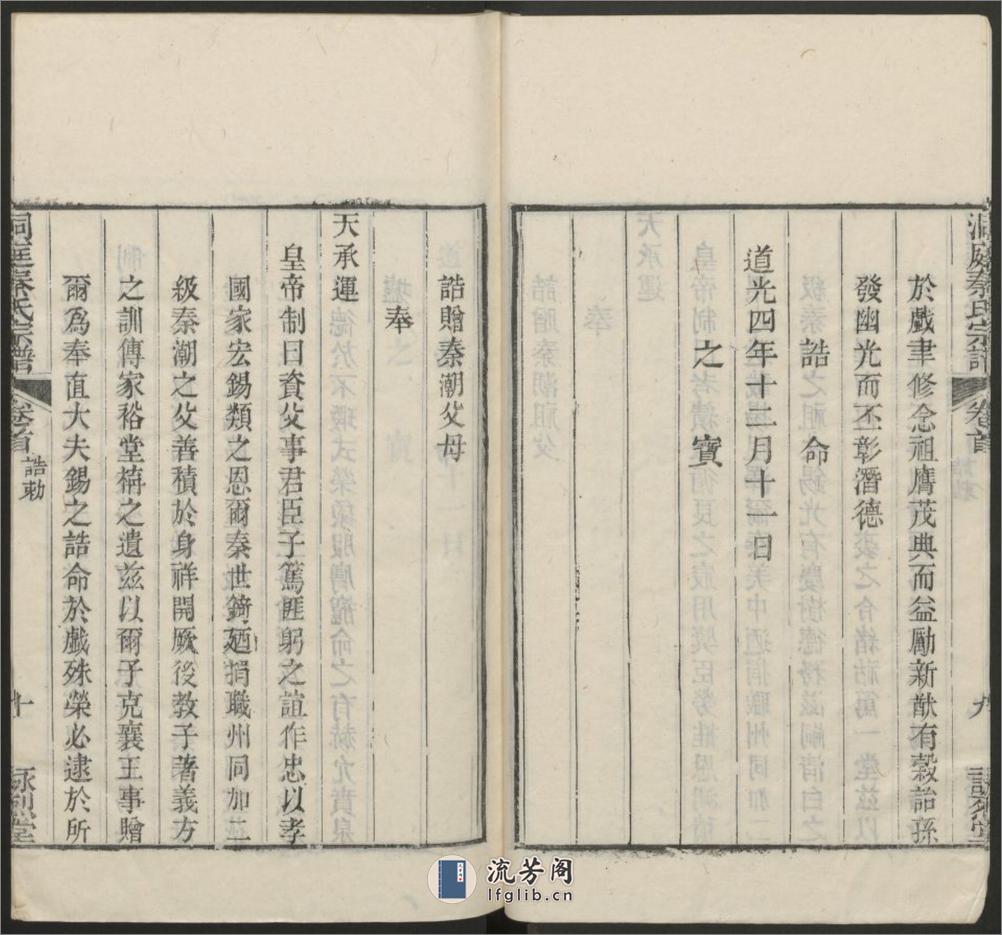 洞庭秦氏宗譜
卷首
九
於戲聿修念祖膺茂典而益勵新猷有穀詒孫
發幽光而丕彰潛德
誥命
道光四年十二月十一日
之寶
誥贈秦潮父母
奉
天承運
皇帝制曰資父事君臣子篤匪躬之誼作忠以孝
國家宏錫類之恩爾秦世錡廼捐職州同加二
級秦潮之父善積於身祥開厥後教子著義方
之訓傳家裕堂構之遺茲以爾子克襄王事贈
爾爲奉直大夫錫之誥命於戲殊榮必逮於所
洞庭秦氏宗譜
卷首
誥勅
十
詠烈堂
流芳阁
lfglib.cn